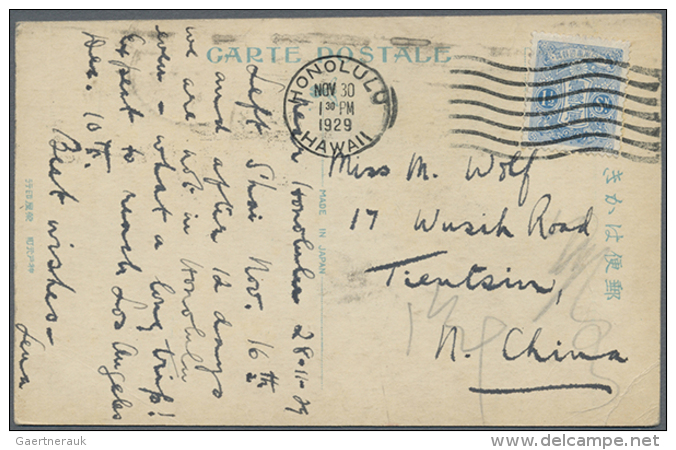 CARTE POSTALE
HONOLULU
NOV 30
1 30 PM
1929
HAWAII
Near Honolulu 28-11-29
Left S'hai Nov. 16th
and after 12 days
we are not in Honolulu
even - what a long trip!
Expect to reach Los Angeles
Dec. 10th.
Best wishes -
Lena
MADE IN JAPAN
Miss M. Wolf
17 Wusih Road
Tientsin,
N. China
きかは便郵
Gaertnerauk
© www.delcampe.net